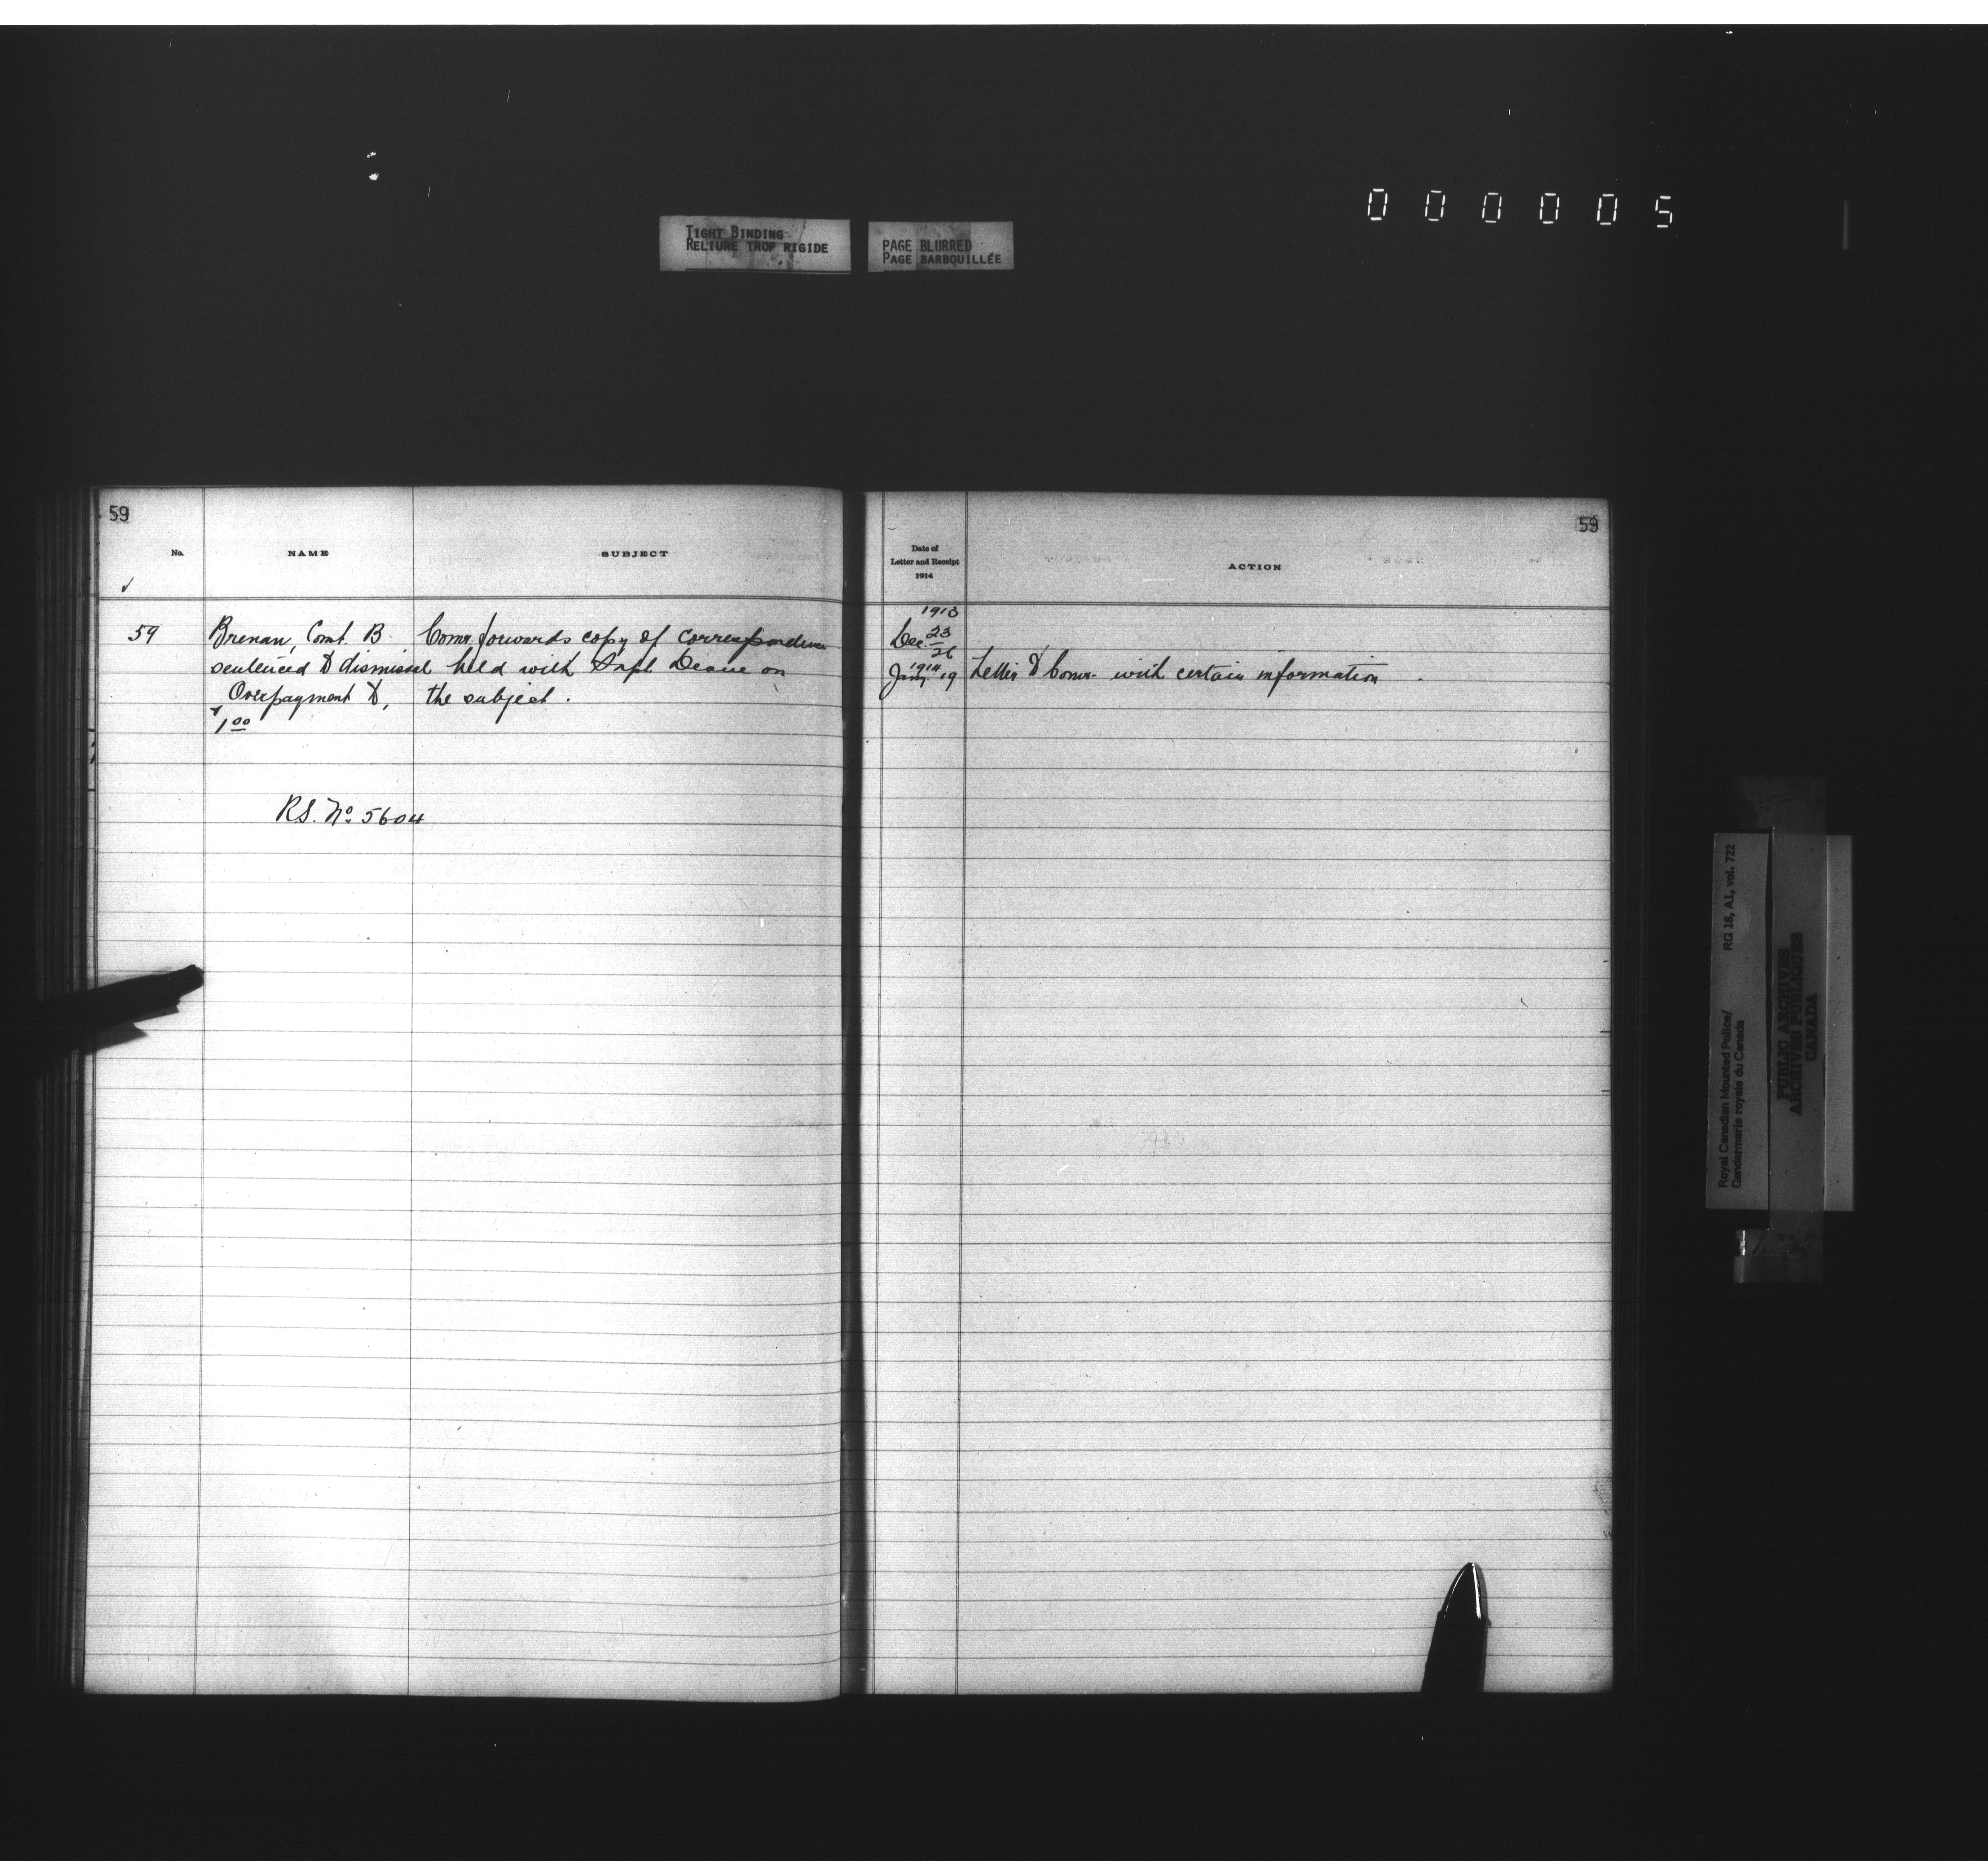 000005
TIGHT BINDING
RELIURE TROP RIGIDE
PAGE BLURRED
PAGE BARBOUILLÉE
59
No.
NAME
SUBJECT
59
Brenan, Const. B.
sentenced to dismissal
Overpayment to,
$1.00
Comr. forwards copy of correspondence
held with Supt Deane on
the subject.
R.S. No. 5604
59
Date of
Letter and Receipt
1914
ACTION
1913
Dec. 23
26
1914
Jany. 19
Letter to Comr. with certain information.
Royal Canadian Mounted Police/
Gendarmerie royale du Canada
RG 18, A1, vol. 722
PUBLIC ARCHIVES
ARCHIVES PUBLIQUES
CANADA